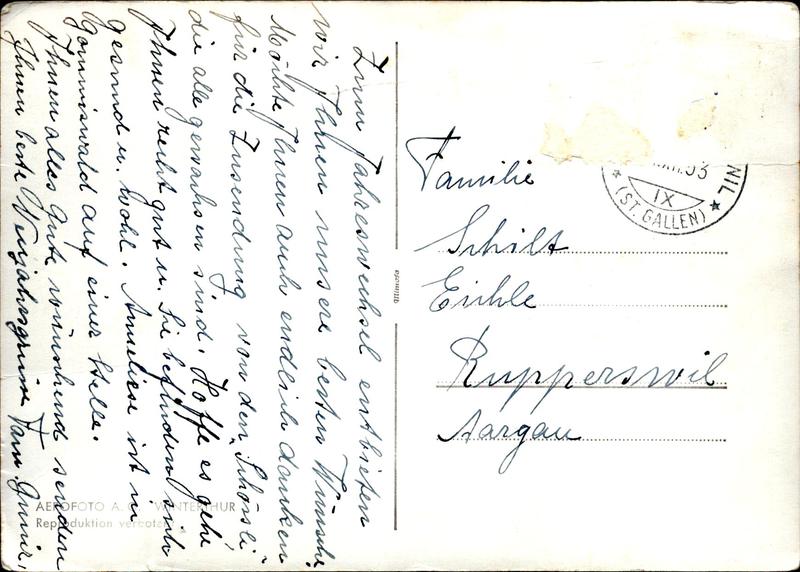 Zum Jahreswechsel entbieten
wir Ihnen unsere besten Wünsche.
Möchte Ihnen auch endlich danken
für die Zusendung von den "Schörsli"
die alle gewachsen sind. Hoffe es gehe
Ihnen recht gut u. Sie befinden sich
gesund u. wohl. Anneliese ist in
Gommiswald auf einer Stelle.
Ihnen alles Gute wünschend senden
Ihnen beste Neujahrsgrüsse Fam.
AEROFOTO A. WINTERTHUR
Reproduktion verboten
Familie
Schilt
Eichle
Rupperswil
Aargau
53
IX
NIL
* (ST. GALLEN) *